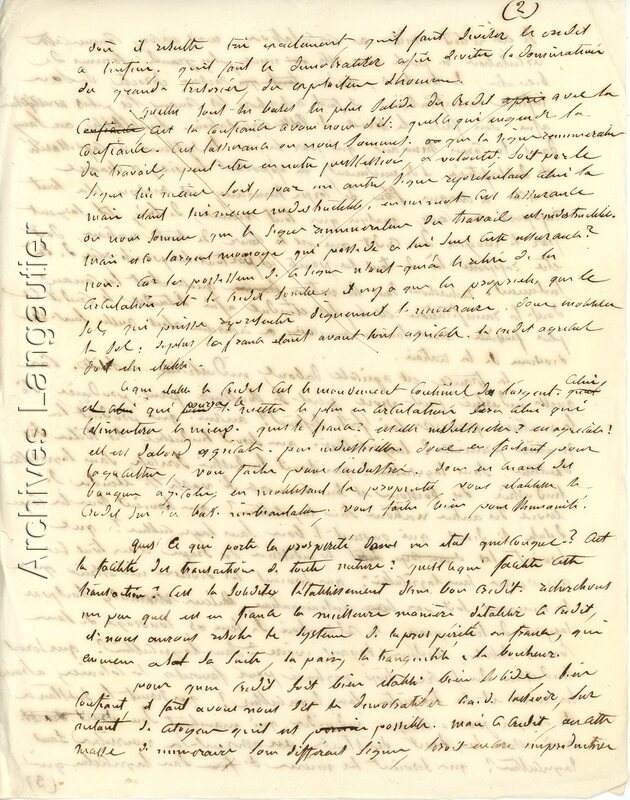 (2)
dou il resulte tres exactement quil faut diviser le credit
a linfini. quil faut le democratiser afin deviter la domination
du grand tresorier, du exploiteur dhomme.
quelles sont les bases les plus solide du credit apres avec la
Confiance cest la confiance avons nous dit. quest ce qui engendre la
Confiance. cest lassurance ou nous sommes, que le signe remunerateur
du travail, peut etre en notre possession, a volonté. soit par le
signe lui meme soit, par un autre signe representant celui la
mais etant lui meme indestructible, en un mot cest lassurance
ou nous somme que le signe remunerateur du travail est indestructible.
mais est ce largent monoyé qui possede en lui seul cette assurance?
non. car les possesseurs de ce signe nont qua le retirer de la
circulation, et le credit tombe. il ny a que la propriété, que le
sol, qui puisse representer dignement le numeraire. donc mobiliser
le sol. de plus la france etant avant tout agricole. le credit agricole
doit etre etabli.
ce qui etabli le credit cest le mouvement continuel de largent. celui
et celui qui pourra le jetter le plus en circulation sera celui qui
lalimentera le mieux. quest la france? est elle industrielle? ou agricole?
elle est dabord agricole. puis industrielle. donc en faisant pour
lagriculteur, vous faites pour lindustrie. donc en creant des
banques agricoles, en mobilisant la propriété vous etablissez le
credit sur des bases inebranlables. vous faites bien pour lhumanité.
quest ce qui porte la prosperité dans un etat quelconque? cest
la facilité des transactions de toute nature? quest ce qui facilite cette
transaction? cest la solidité letablissement dun bon credit. recherchons
un peu quel est en france la meilleure manière detablir le credit,
et nous aurons resolu le systeme de la prosperité en france, qui
emmene a sa suite, la paix, la tranquilité & le bonheur.
pour quun credit soit bien etabli bien solide bien
confiant il faut avons nous dit le democratiser c.a.d. lasseoir sur
autant de citoyens quil est possible. mais le credit, ou cette
masse de numeraire sous different signe, seroit encore improductive
Archives Langautier